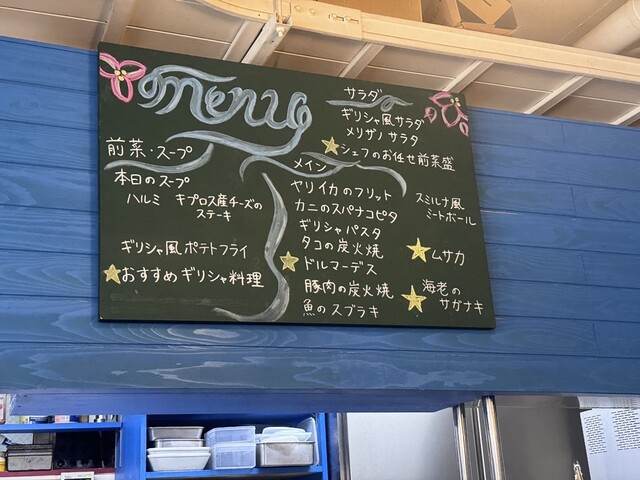 menu
前菜・スープ
本日のスープ
ハルミ キプロス産チーズの
ステーキ
ギリシャ風ポテトフライ
おすすめギリシャ料理
サラダ
ギリシャ風サラダ
メリザノサラタ
シェフのお任せ前菜盛
メイン
ヤリイカのフリット
カニのスパナコピタ
ギリシャパスタ
タコの炭火焼
ドルマーデス
豚肉の炭火焼
魚のスブラキ
スミルナ風
ミートボール
ムサカ
海老の
サガナキ